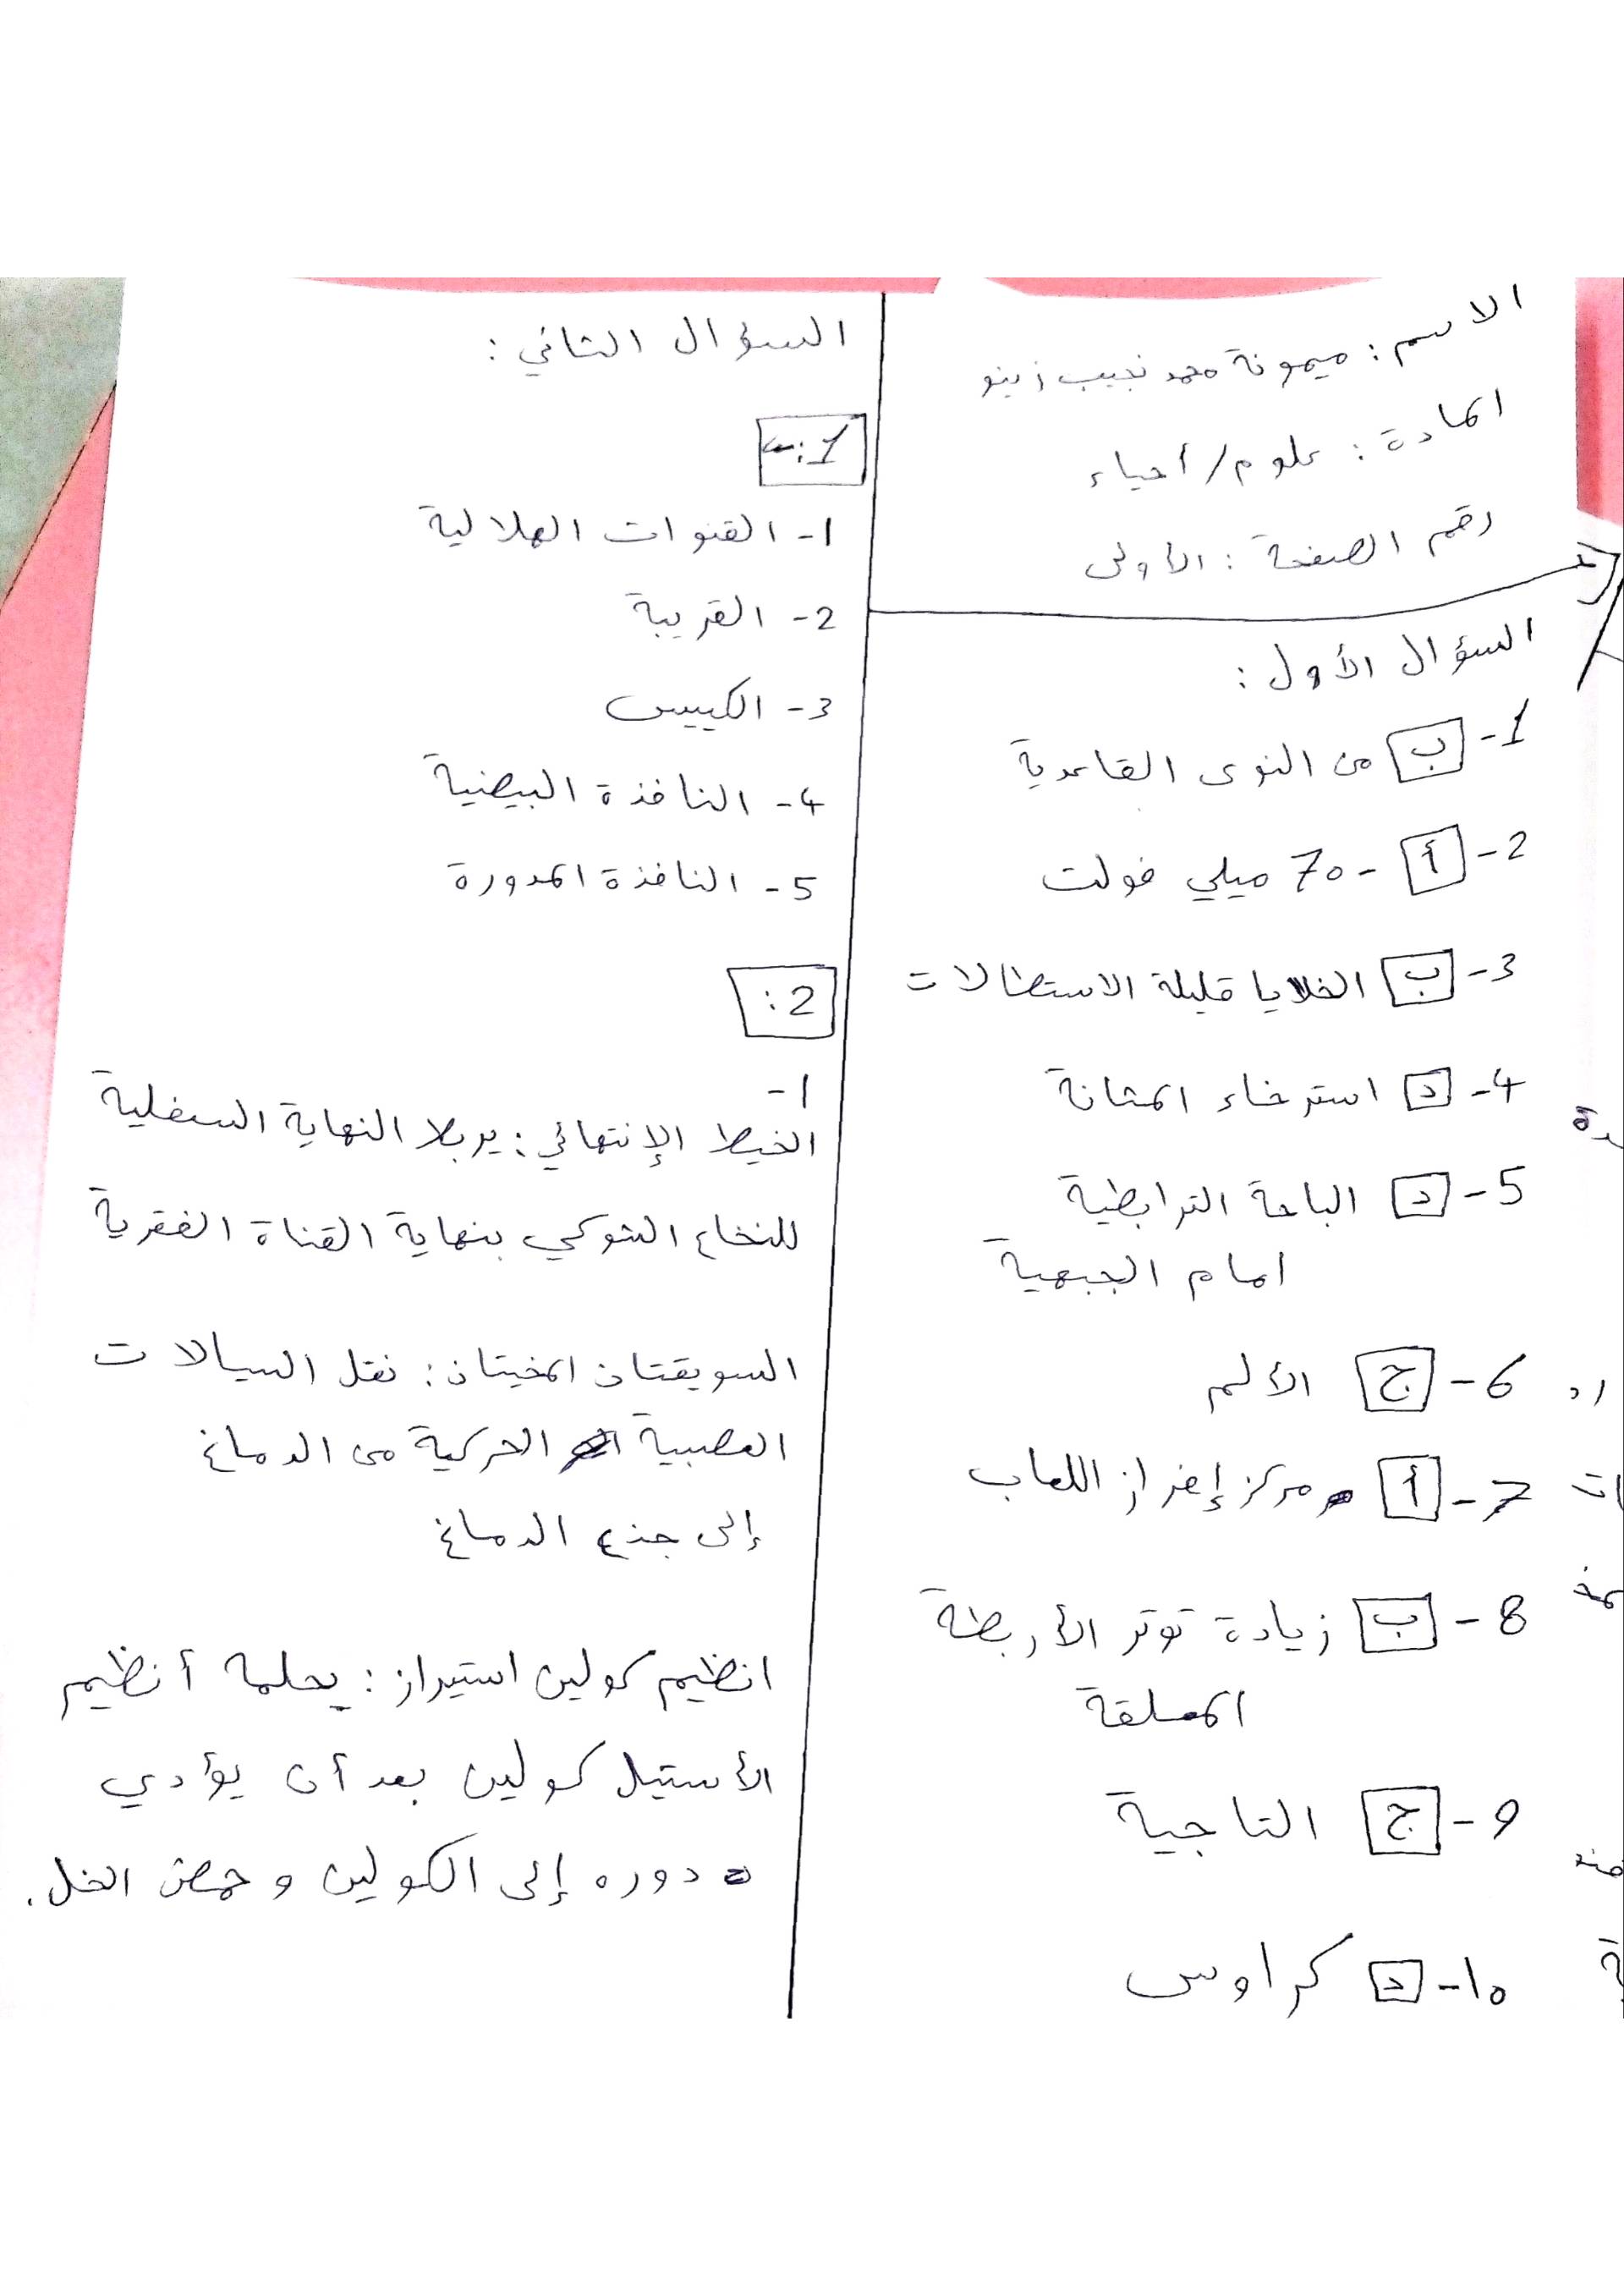 الاسم : ميمونة محمد نجيب زينو
المادة : علوم / أحياء
رقم الصفحة : الأولى
السؤال الأول :
1- ب من النوى القاعدية
2- أ -70 ميلي فولت
3- ب الخلايا قليلة الاستطالات
4- د استرخاء المثانة
5- د الباحة الترابطية
امام الجبهية
6- ج الألم
7- أ مركز إفراز اللعاب
8- ب زيادة توتر الأربطة
المعلقة
9- ج التاجية
10- د كراوس
السؤال الثاني :
1:
1- القنوات الهلالية
2- القريبة
3- الكييس
4- النافذة البيضية
5- النافذة المدورة
2:
1-
الخيط الإنتهائي : يربط النهاية السفلية
للنخاع الشوكي بنهاية القناة الفقرية
السويقتان المخيتان : نقل السيالات
العصبية الحركية من الدماغ
إلى جذع الدماغ
انظيم كولين استيراز : يحلمه أنظيم
الأستيل كولين بعد أن يؤدي
دوره إلى الكولين و حمض الخل.